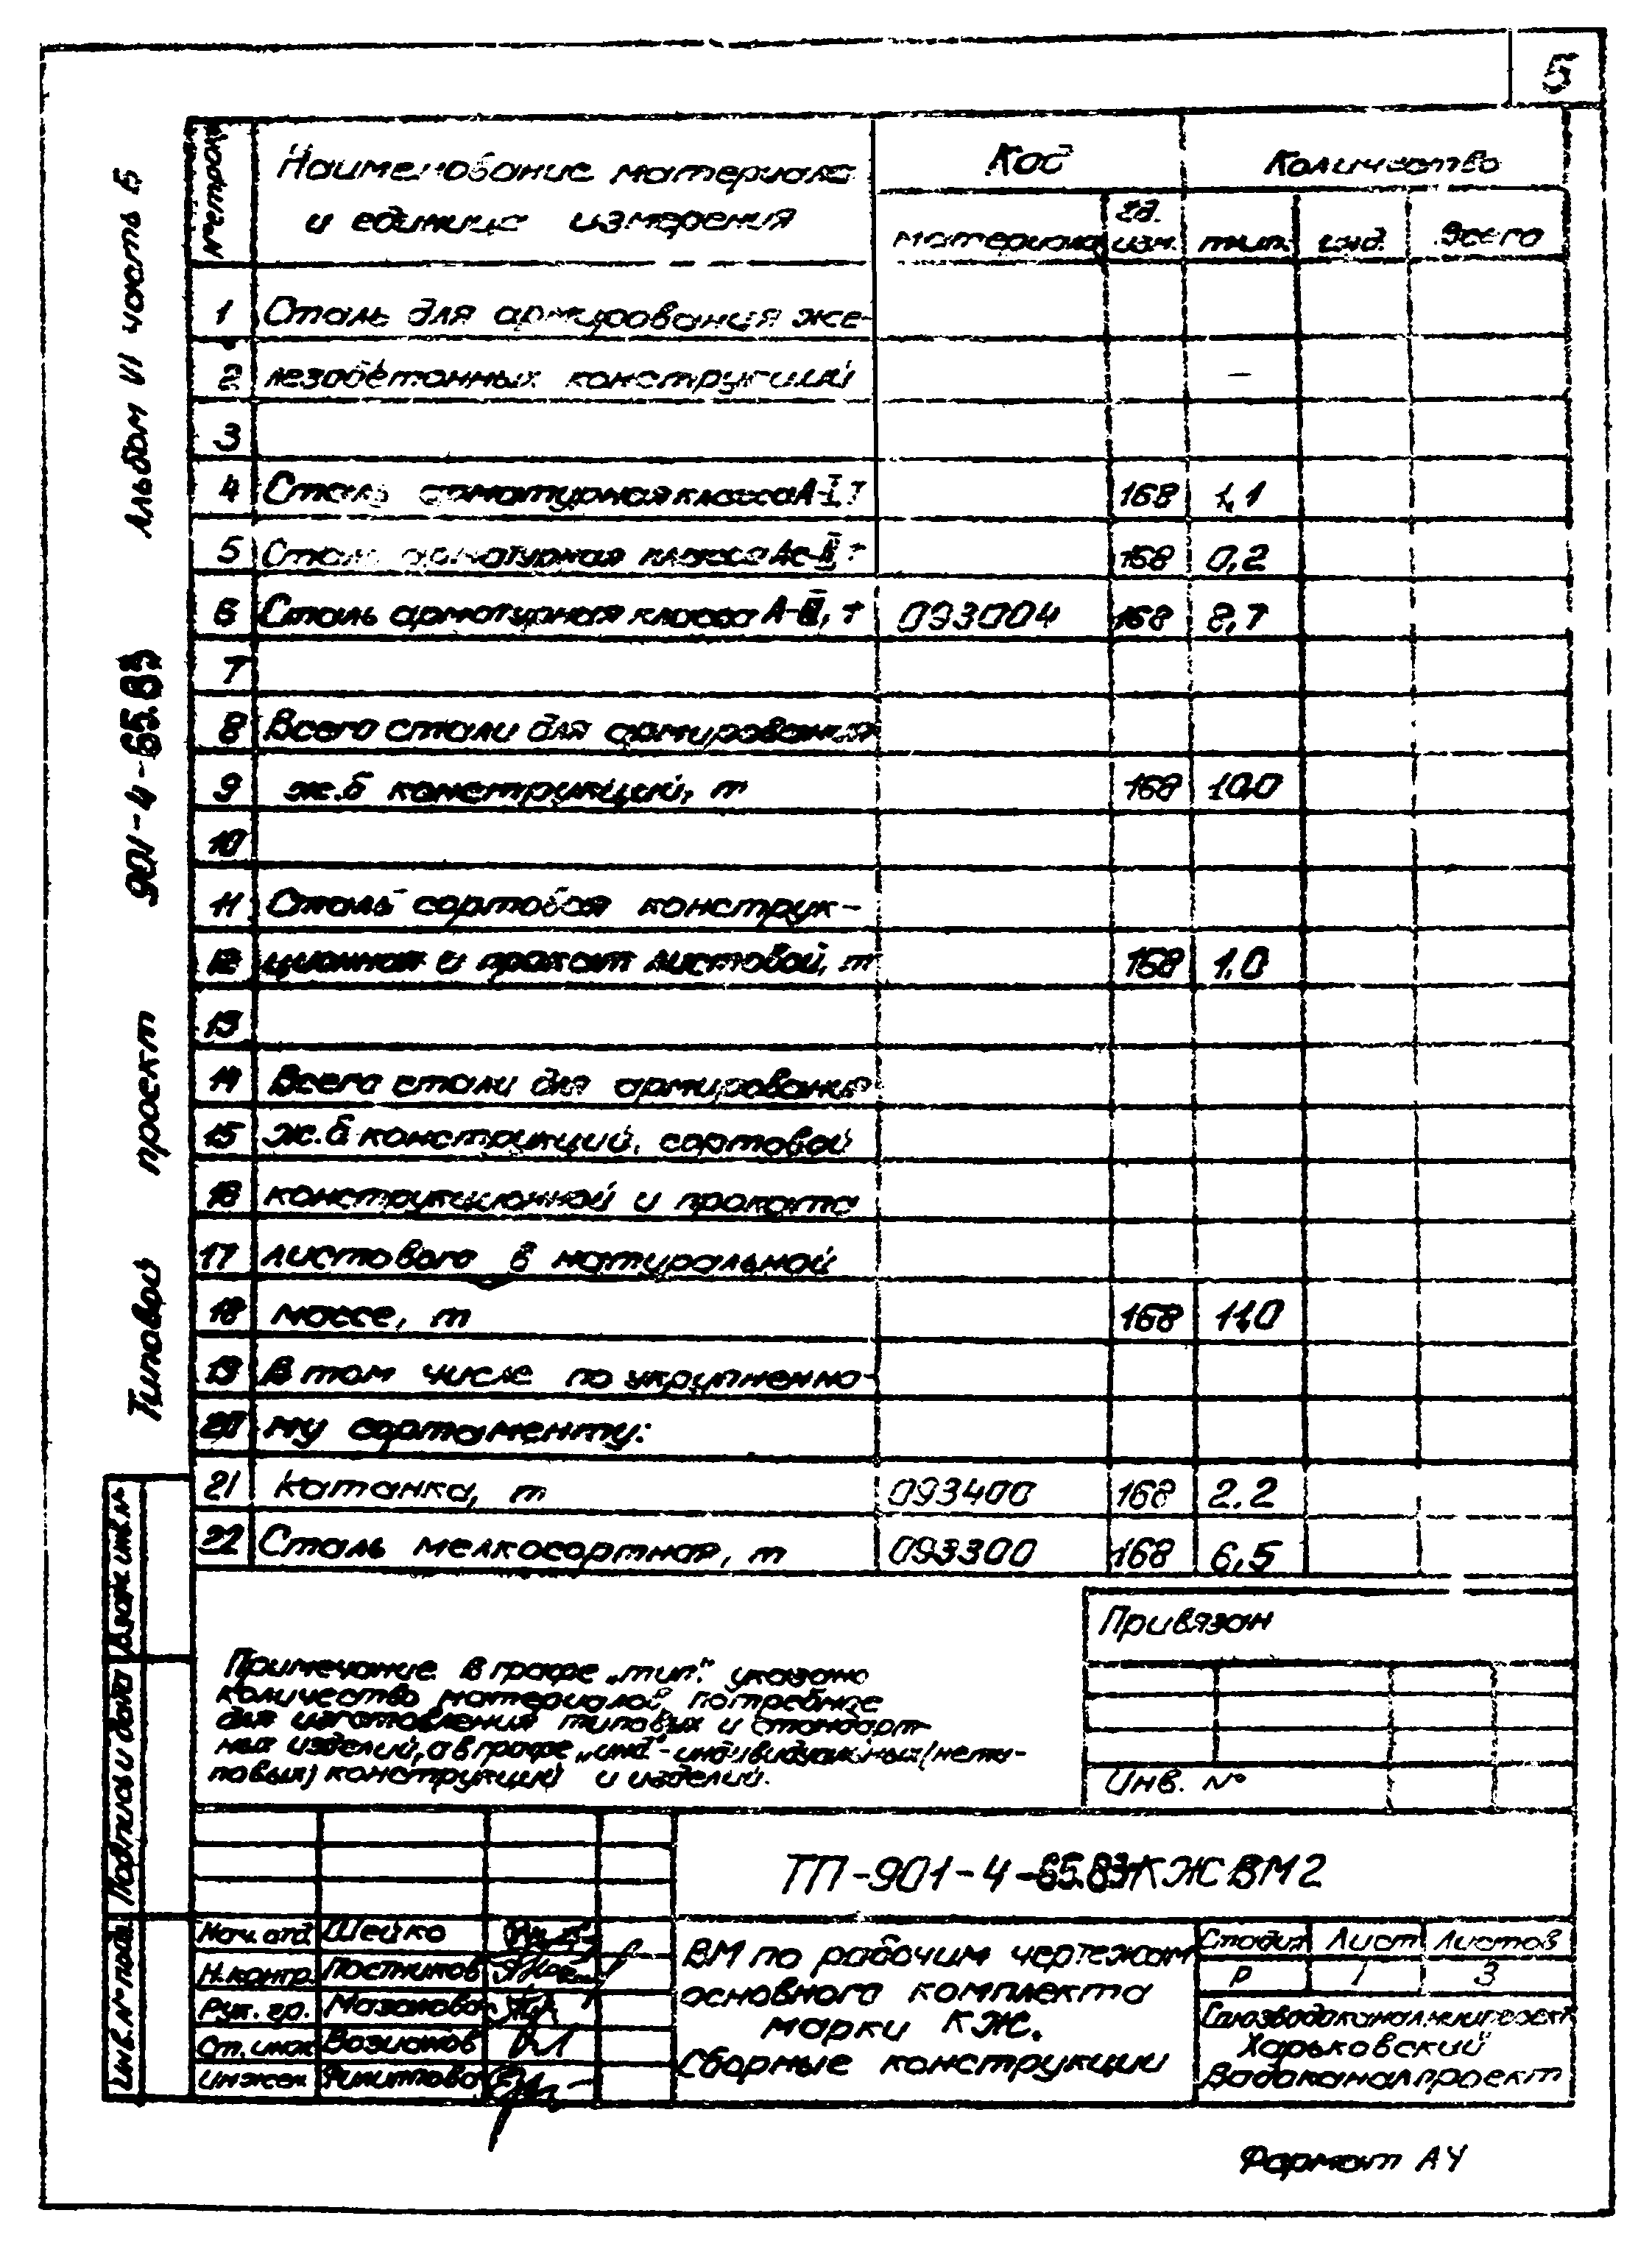 5
Типовой проект 901-4-65.83 Альбом VI часть 5
№ строки
Наименование материала
и единица измерения
Код
Количество
материала
Ед. изм.
тип.
инд.
Всего
1 Сталь для армирования же-
2 лезобетонных конструкций –
3
4 Сталь арматурная класса А-I, т 168 1,1
5 Сталь арматурная класса Ас-II т 168 0,2
6 Сталь арматурная класса А-III, т 093004 168 8,7
7
8 Всего стали для армирования
9 ж.б конструкций, т 168 10,0
10
11 Сталь сортовая конструк-
12 ционная и прокат листовой, т 168 1,0
13
14 Всего стали для армирования
15 ж.б конструкций, сортовой
16 конструкционной и проката
17 листового в натуральной
18 массе, т 168 11,0
19 В том числе по укрупненно-
20 му сортаменту:
21 Катанка, т 093400 168 2.2
22 Сталь мелкосортная, т 093300 168 6,5
Примечание. В графе „тип." указано
количество материалов, потребное
для изготовления типовых и стандарт-
ных изделий, а в графе „инд"-индивидуальных(нети-
повых) конструкций и изделий.
Привязан
Инв. №
Взам. инв. №
Подпись и дата
Инв. № подл.
ТП-901-4-65.83-КЖ ВМ2
Нач. отд Шейко
Н.контр. Постников
Рук. гр. Мазанова
Ст. инж
Инжен
ВМ по рабочим чертежам
основного комплекта
марки КЖ.
Сборные конструкции
Стадия Лист Листов
Р 1 3
Союзводоканалниипроект
Харьковский
Водоканалпроект
Формат А4